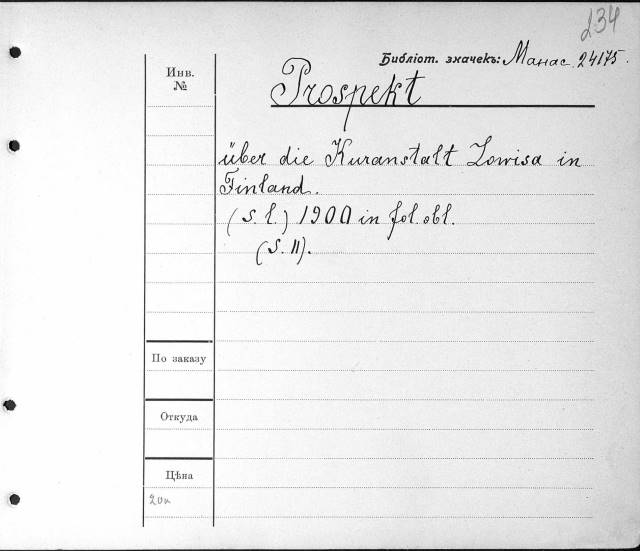 234
Библіот. значекъ: Манас. 24175.
Инв.
№
Prospekt
über die Kuranstalt Lowisa in
Finland.
(S. l.) 1900 in fol. obl.
(S. 11).
По заказу
Откуда
Цѣна